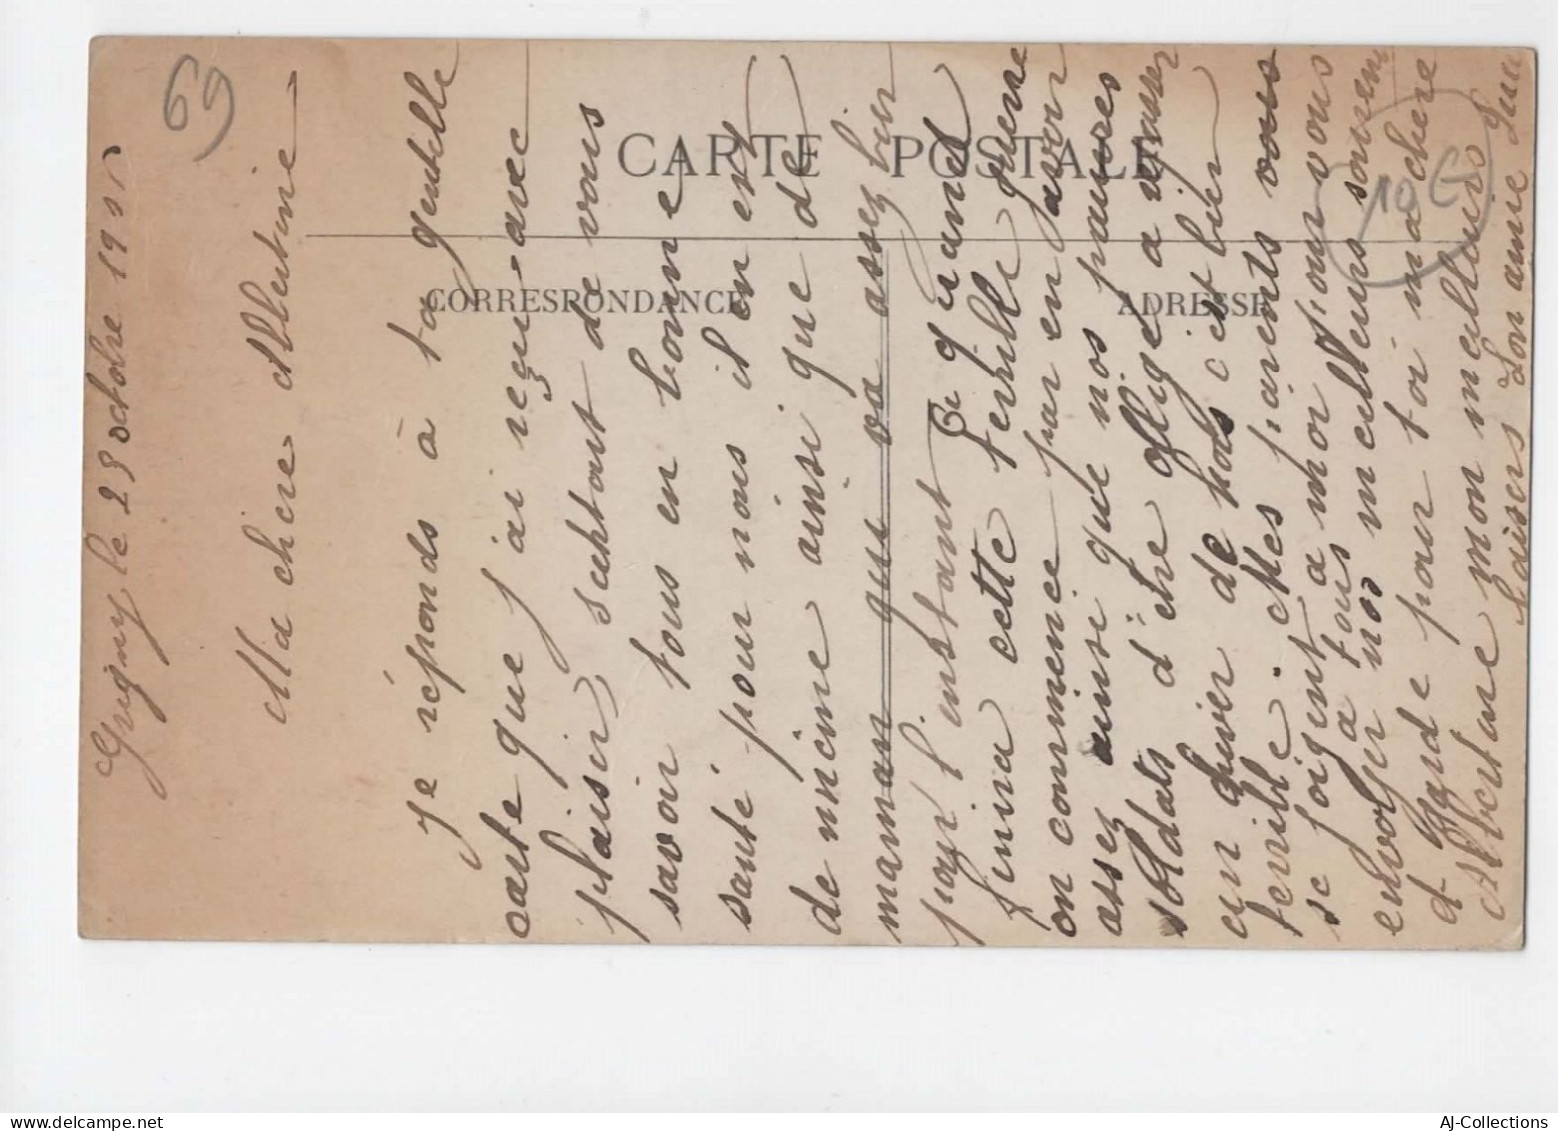 69
CARTE POSTALE
CORRESPONDANCE
ADRESSE
10 €
Grigny le 25 octobre 1915
Ma chere Albertine
Je réponds à ta gentille
carte que j'ai reçu avec
plaisir, sachant de vous
savoir tous en bonne
santé pour nous il en est
de même ainsi que de
maman qui va assez bien
pour l'instant Si quand
finira cette terrible guerre
on commence par en avoir
assez ainsi que nos pauvres
soldats d'être obligé a passer
un hiver de plus c'est bien
terrible. Mes parents vous
se joigent a moi pour vous
envoyer a tous nos meilleurs souvenirs
et garde pour toi ma chere
Albertine mon meilleurs
baisers Ton amie
AJ-Collections